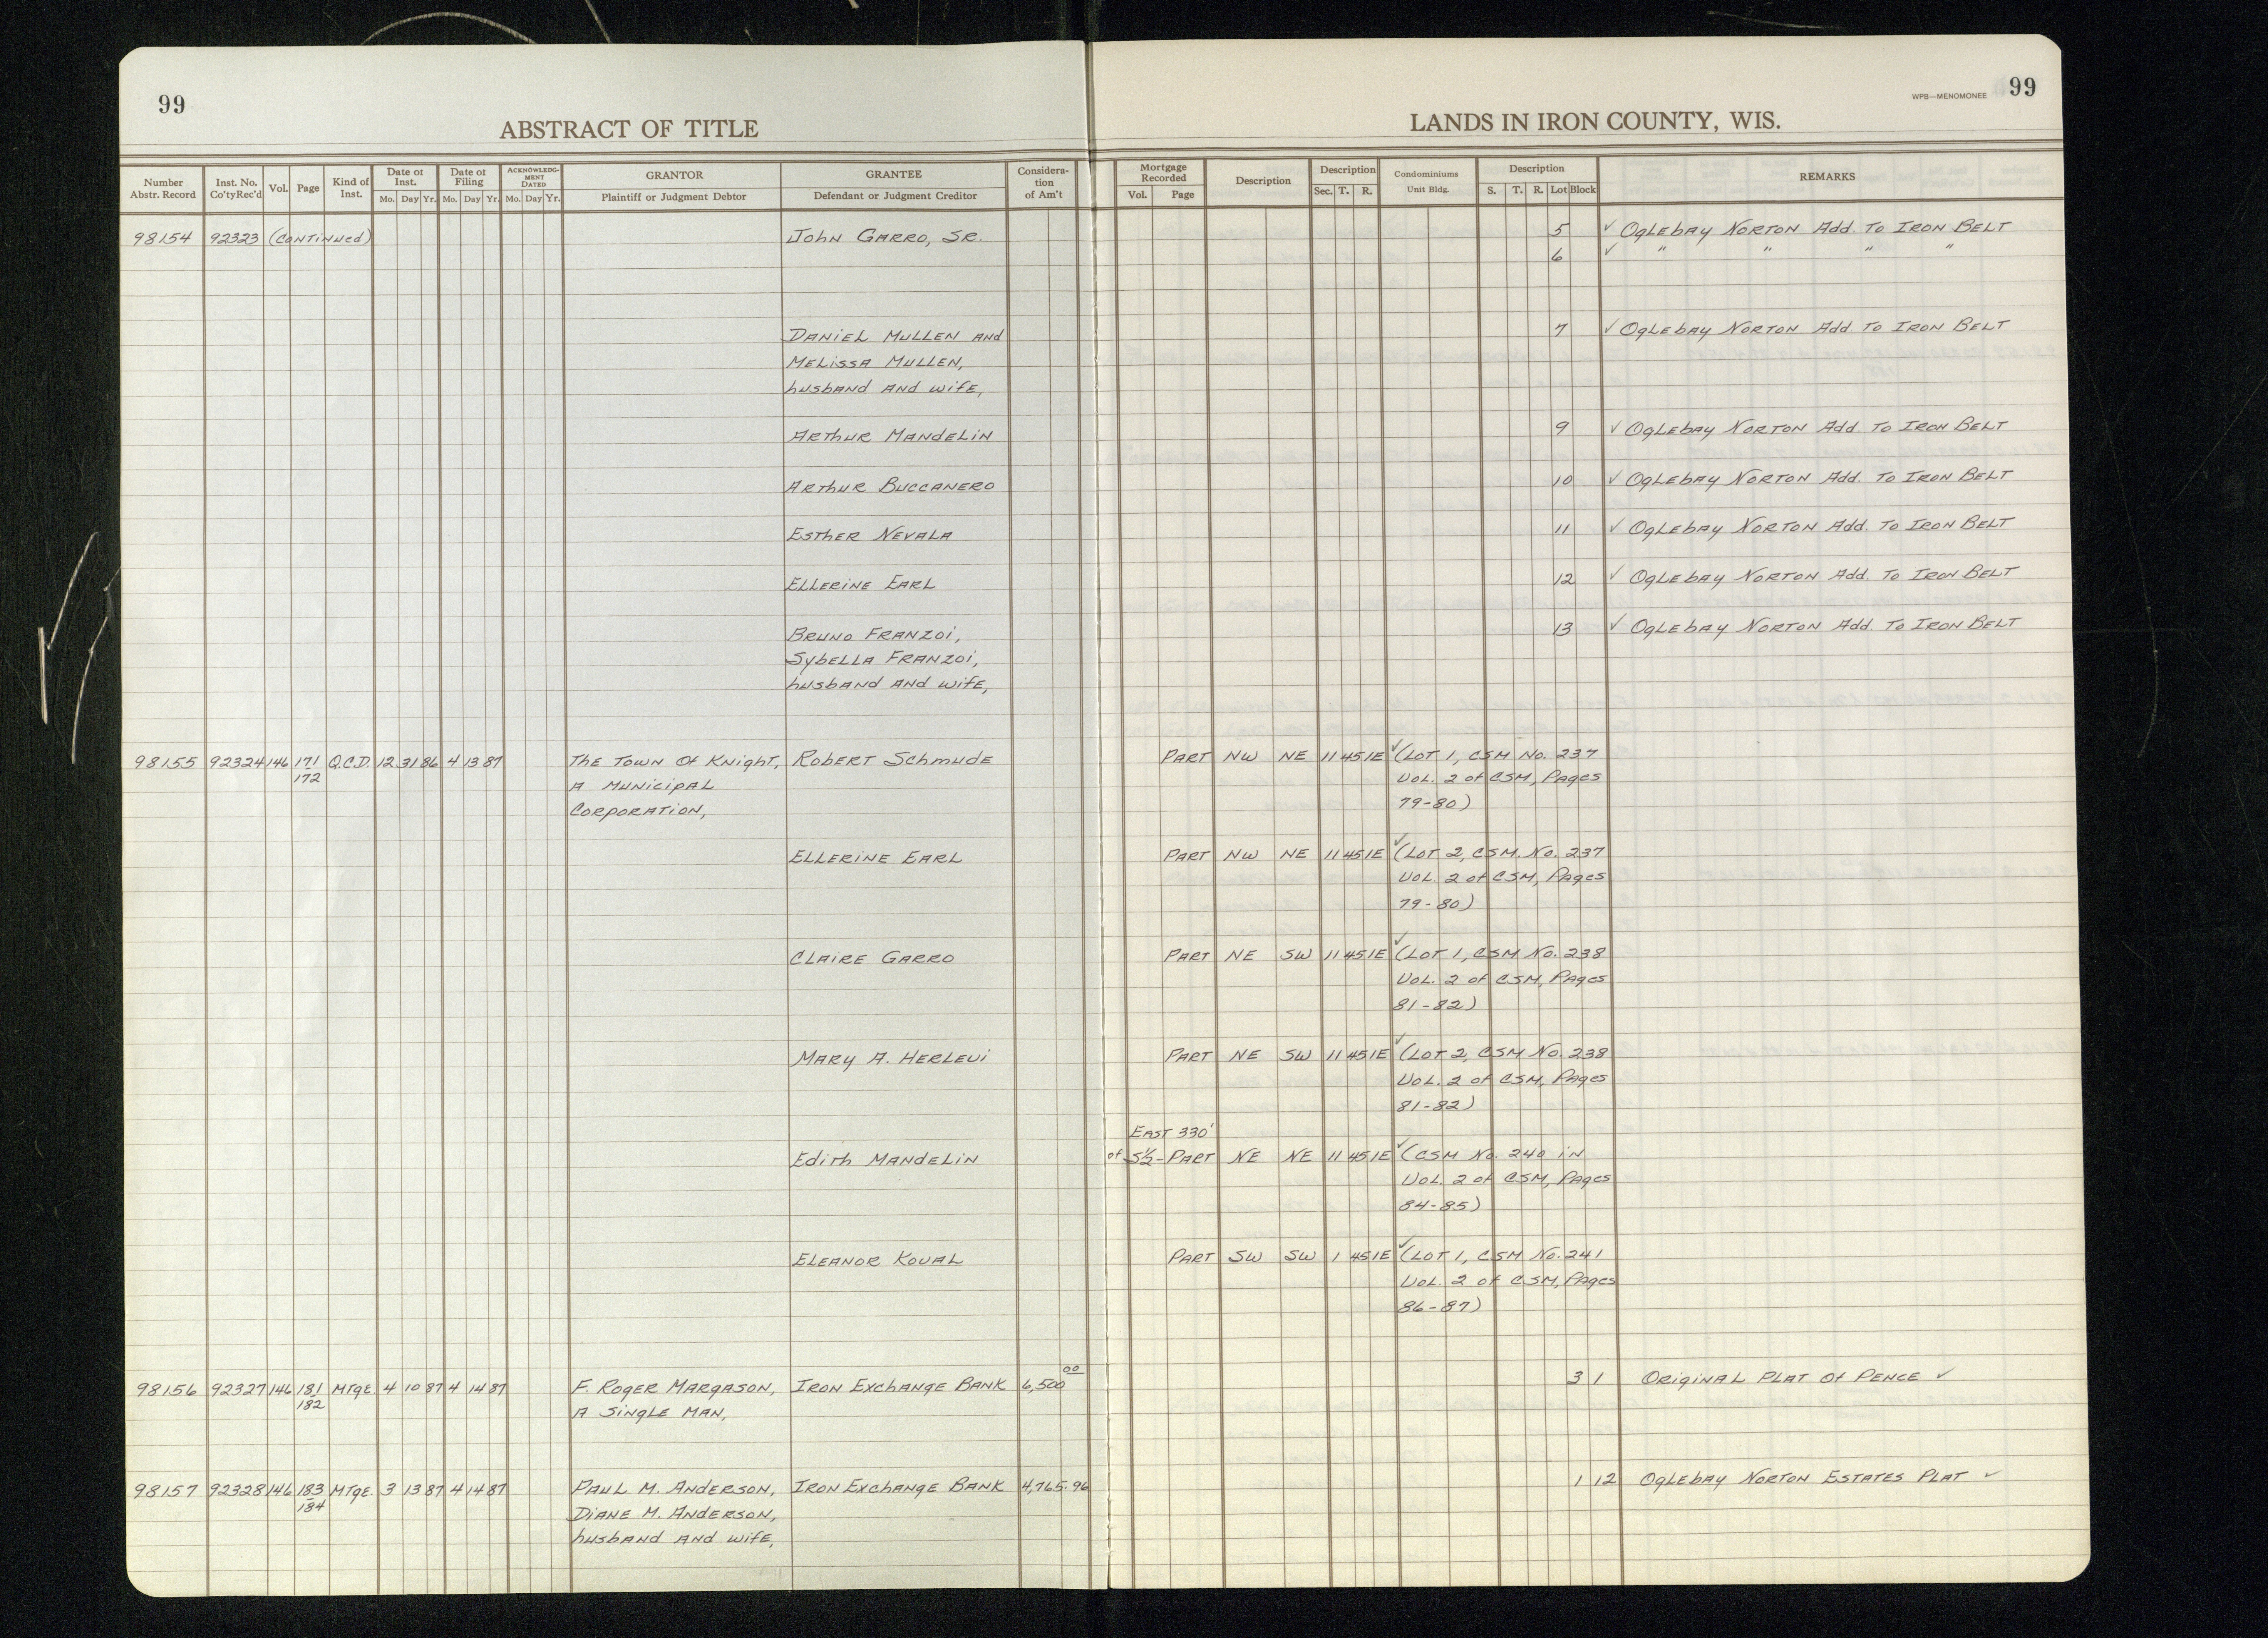 99
ABSTRACT OF TITLE
LANDS IN IRON COUNTY, WIS.
WPB—MENOMONEE 99
Number Abstr. Record Inst. No. Co'tyRec'd Vol. Page Kind of Inst. Date of Inst. Mo. Day Yr. Date of Filing Mo. Day Yr. ACKNOWLEDG-MENT DATED Mo. Day Yr. GRANTOR Plaintiff or Judgment Debtor GRANTEE Defendant or Judgment Creditor Considera-tion of Am't Mortgage Recorded Vol. Page Description Description Sec. T. R. Condominiums Unit Bldg. Description S. T. R. Lot Block REMARKS
98154 92323 (Continued) John Garro, Sr. 5 ✓ Oglebay Norton Add. To Iron Belt
6 ✓ " " " "
Daniel Mullen and 7 ✓ Oglebay Norton Add. To Iron Belt
Melissa Mullen,
husband and wife,
Arthur Mandelin 9 ✓ Oglebay Norton Add. To Iron Belt
Arthur Buccanero 10 ✓ Oglebay Norton Add. To Iron Belt
Esther Nevala 11 ✓ Oglebay Norton Add. To Iron Belt
Ellerine Earl 12 ✓ Oglebay Norton Add. To Iron Belt
Bruno Franzoi, 13 ✓ Oglebay Norton Add. To Iron Belt
Sybella Franzoi,
husband and wife,
98155 92324 146 171 Q.C.D. 12 31 86 4 13 87 The Town of Knight, Robert Schmude Part NW NE 11 45 1E ✓ (Lot 1, CSM No. 237
172 A Municipal Vol. 2 of CSM, Pages
Corporation, 79-80)
Ellerine Earl Part NW NE 11 45 1E ✓ (Lot 2, CSM. No. 237
Vol. 2 of CSM, Pages
79-80)
Claire Garro Part NE SW 11 45 1E ✓ (Lot 1, CSM No. 238
Vol. 2 of CSM, Pages
81-82)
Mary A. Herlevi Part NE SW 11 45 1E ✓ (Lot 2, CSM No. 238
Vol. 2 of CSM, Pages
81-82)
East 330'
Edith Mandelin of S½-Part NE NE 11 45 1E ✓ (CSM No. 240 in
Vol. 2 of CSM, Pages
84-85)
Eleanor Koval Part SW SW 1 45 1E ✓ (Lot 1, CSM No. 241
Vol. 2 of CSM, Pages
86-87)
98156 92327 146 181 Mtge. 4 10 87 4 14 87 F. Roger Margason, Iron Exchange Bank 6,500 00 3 1 Original Plat of Pence ✓
182 A Single Man,
98157 92328 146 183 Mtge. 3 13 87 4 14 87 Paul M. Anderson, Iron Exchange Bank 4,765.96 1 12 Oglebay Norton Estates Plat ✓
184 Diane M. Anderson,
husband and wife,